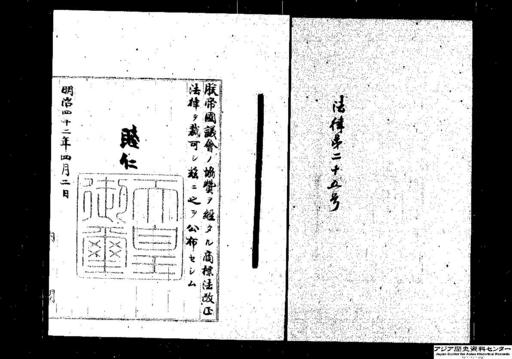 法律第二十五号
朕帝國議會ノ協贊ヲ經タル商標法改正
法律ヲ裁可シ玆ニ之ヲ公布セシム
睦仁
天皇御璽
明治四十二年四月二日
アジア歴史資料センター
Japan Center for Asian Historical Records